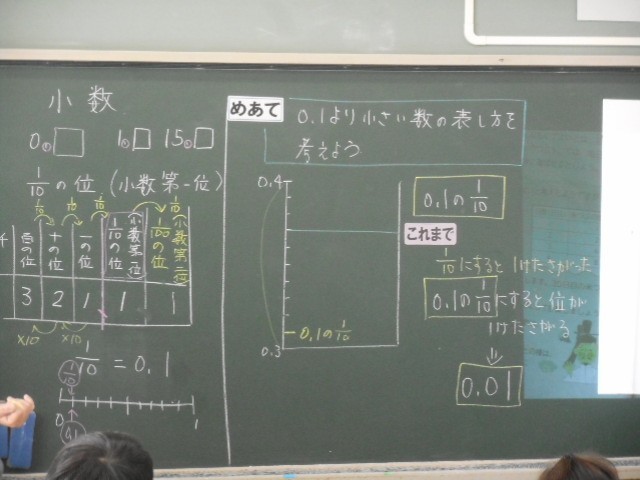 小数
0.□ 1.□ 15.□
1/10の位(小数第一位)
1/10 1/10 1/10 1/10
百の位 十の位 一の位 1/10の位(小数第一位) 1/100の位(小数第二位)
3 2 1 1 1
×10 ×10
1/10 = 0.1
1/10
0 1
0.1
めあて
0.1より小さい数の表し方を
考えよう
0.4
0.1の1/10
0.3
0.1の1/10
これまで
1/10にすると1けたさがった
0.1の1/10にすると位が
1けたさがる
⇓
0.01